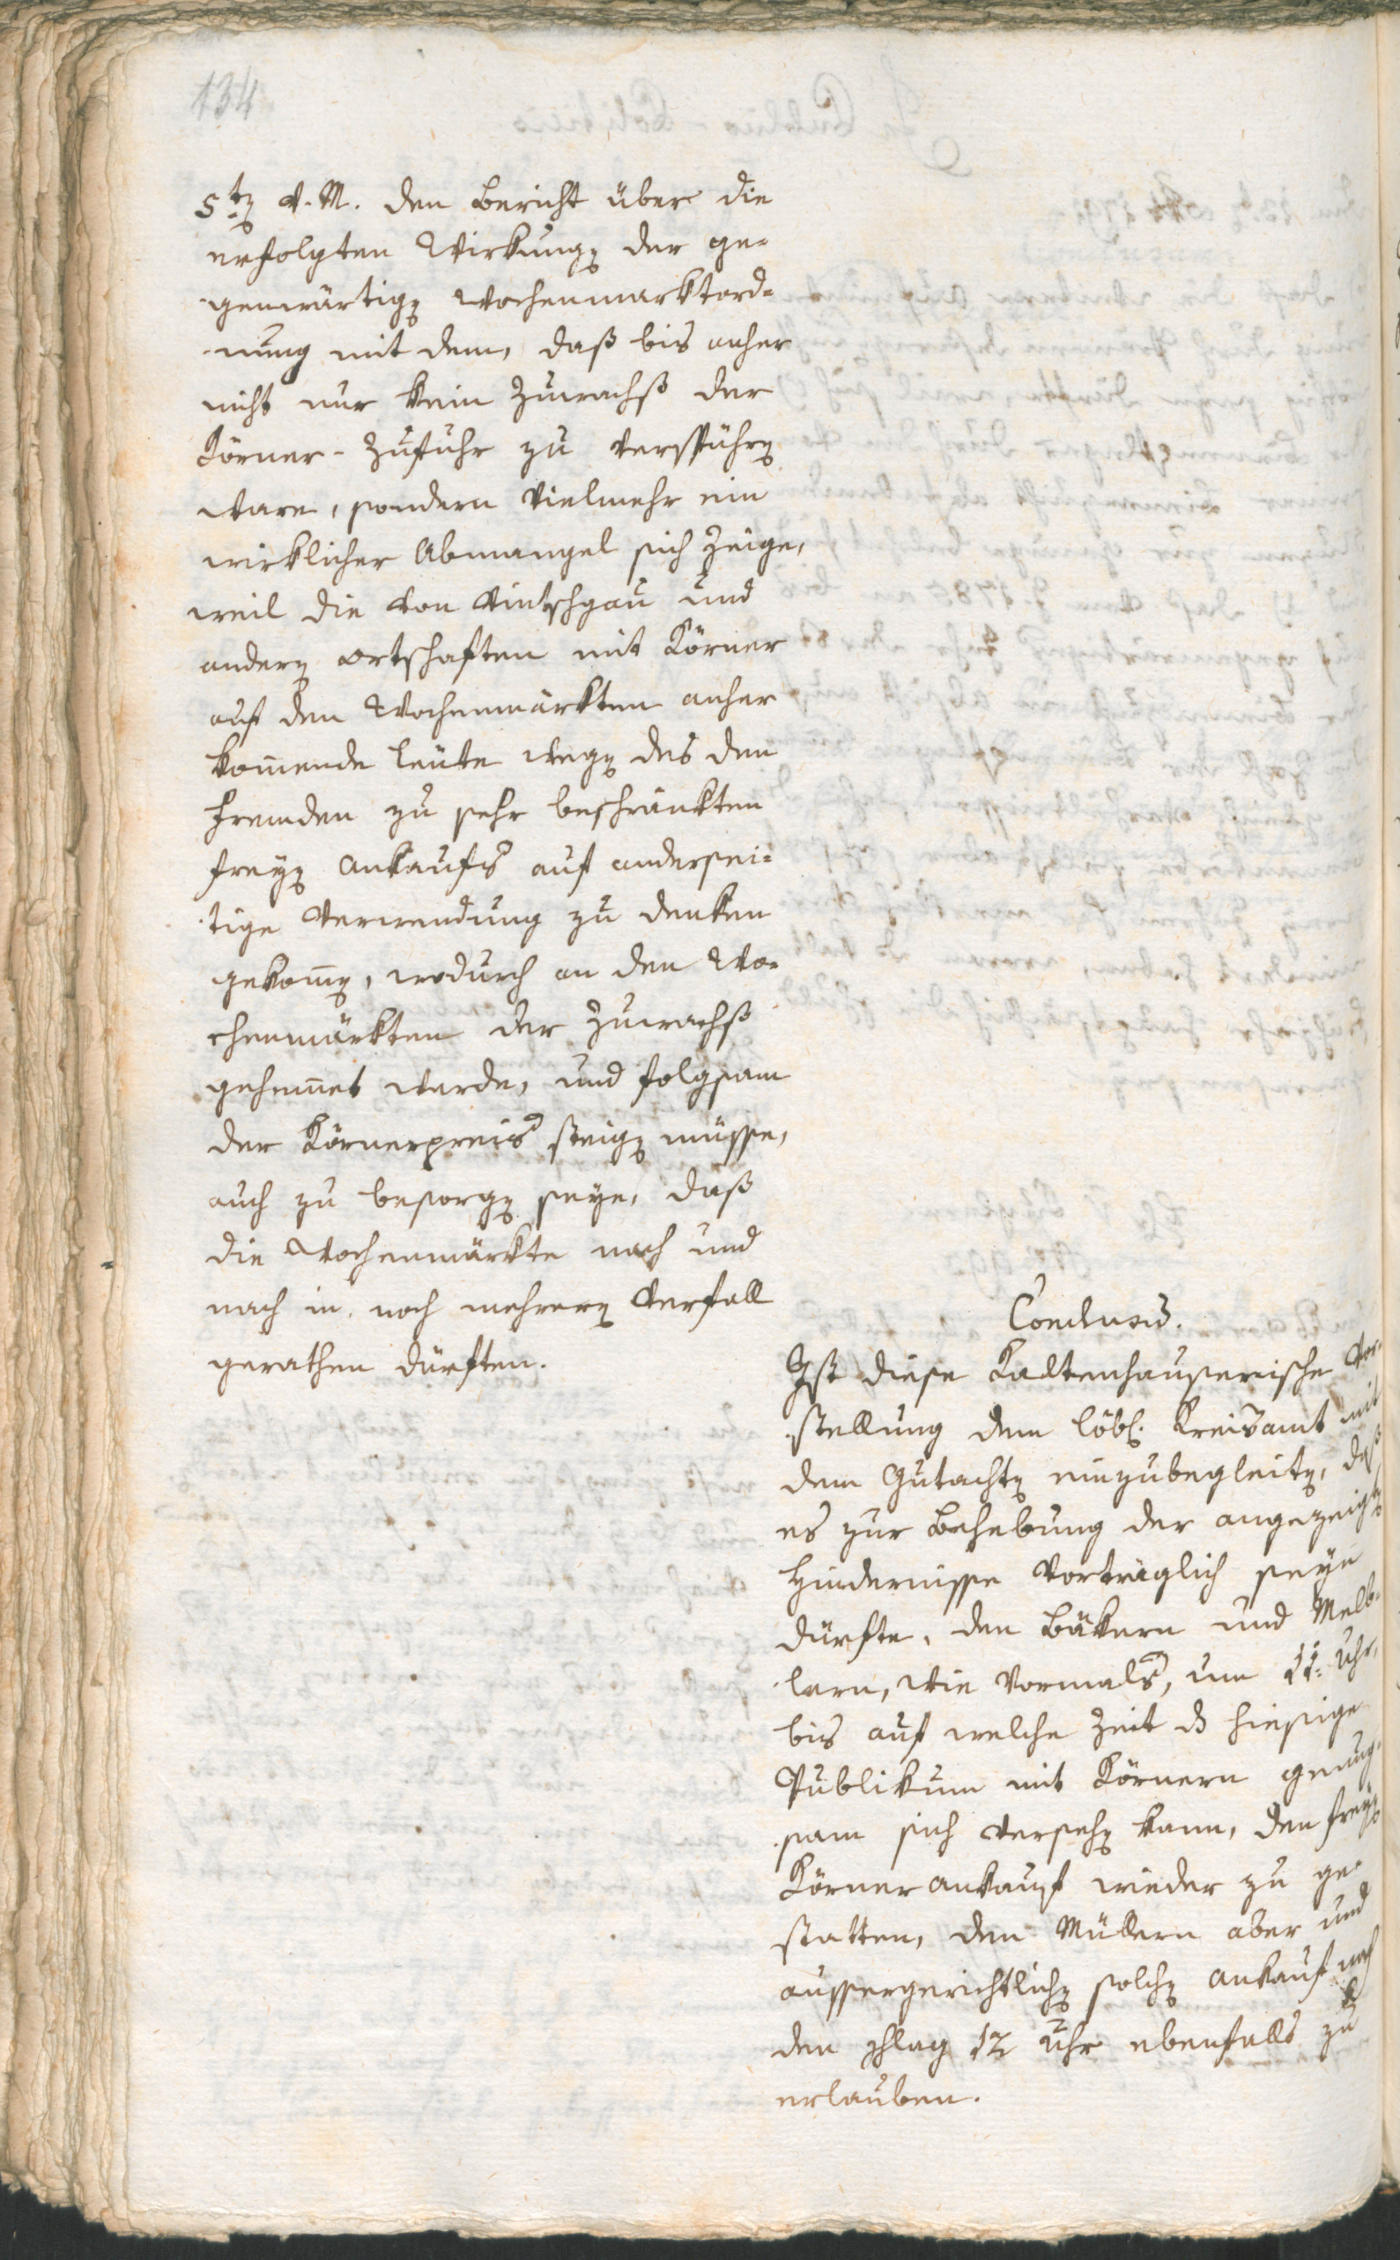 134
5ten v. M. den Bericht über die
erfolgten Wirkungen der ge-
genwärtigen Wochenmarktord-
nung mit dem, daß bis anher
nicht nur kein Zuwachß der
Körner-Zufuhr zu verspühren
ware, sondern vielmehr ein
wirklicher Abmangel sich zeige,
weil die von Vintschgau und
andern Ortschaften mit Körner
auf den Wochenmärkten anher
kommende Leüte wegen des den
Fremden zu sehr beschränkten
freyen Ankaufs auf andersei-
tige Verwendung zu denken
gekommen, wodurch an den Wo-
chenmärkten der Zuwachß
gehemmet werde, und folgsam
der Körnerpreis steigen müsse,
auch zu besorgen seye, daß
die Wochenmärkte nach und
nach in noch mehrern Verfall
gerathen dürften.
Conclusum.
Ist diese Kaltenhauserische Vor-
stellung dem löbl. Kreisamt mit
dem Gutachten einzubegleiten, daß
es zur Behebung der angezeigten
Hindernisse vorträglich seyn
dürfte, den Bäkern und Melb-
lern, wie vormals, um 11: Uhr,
bis auf welche Zeit das hiesige
Publikum mit Körnern genug-
sam sich versehen kann, den freyen
Körnerankauf wieder zu ge-
statten, den Müllern aber und
aussergerichtlichen solchen Ankauf nach
den schlag 12 Uhr ebenfalls zu
erlauben.